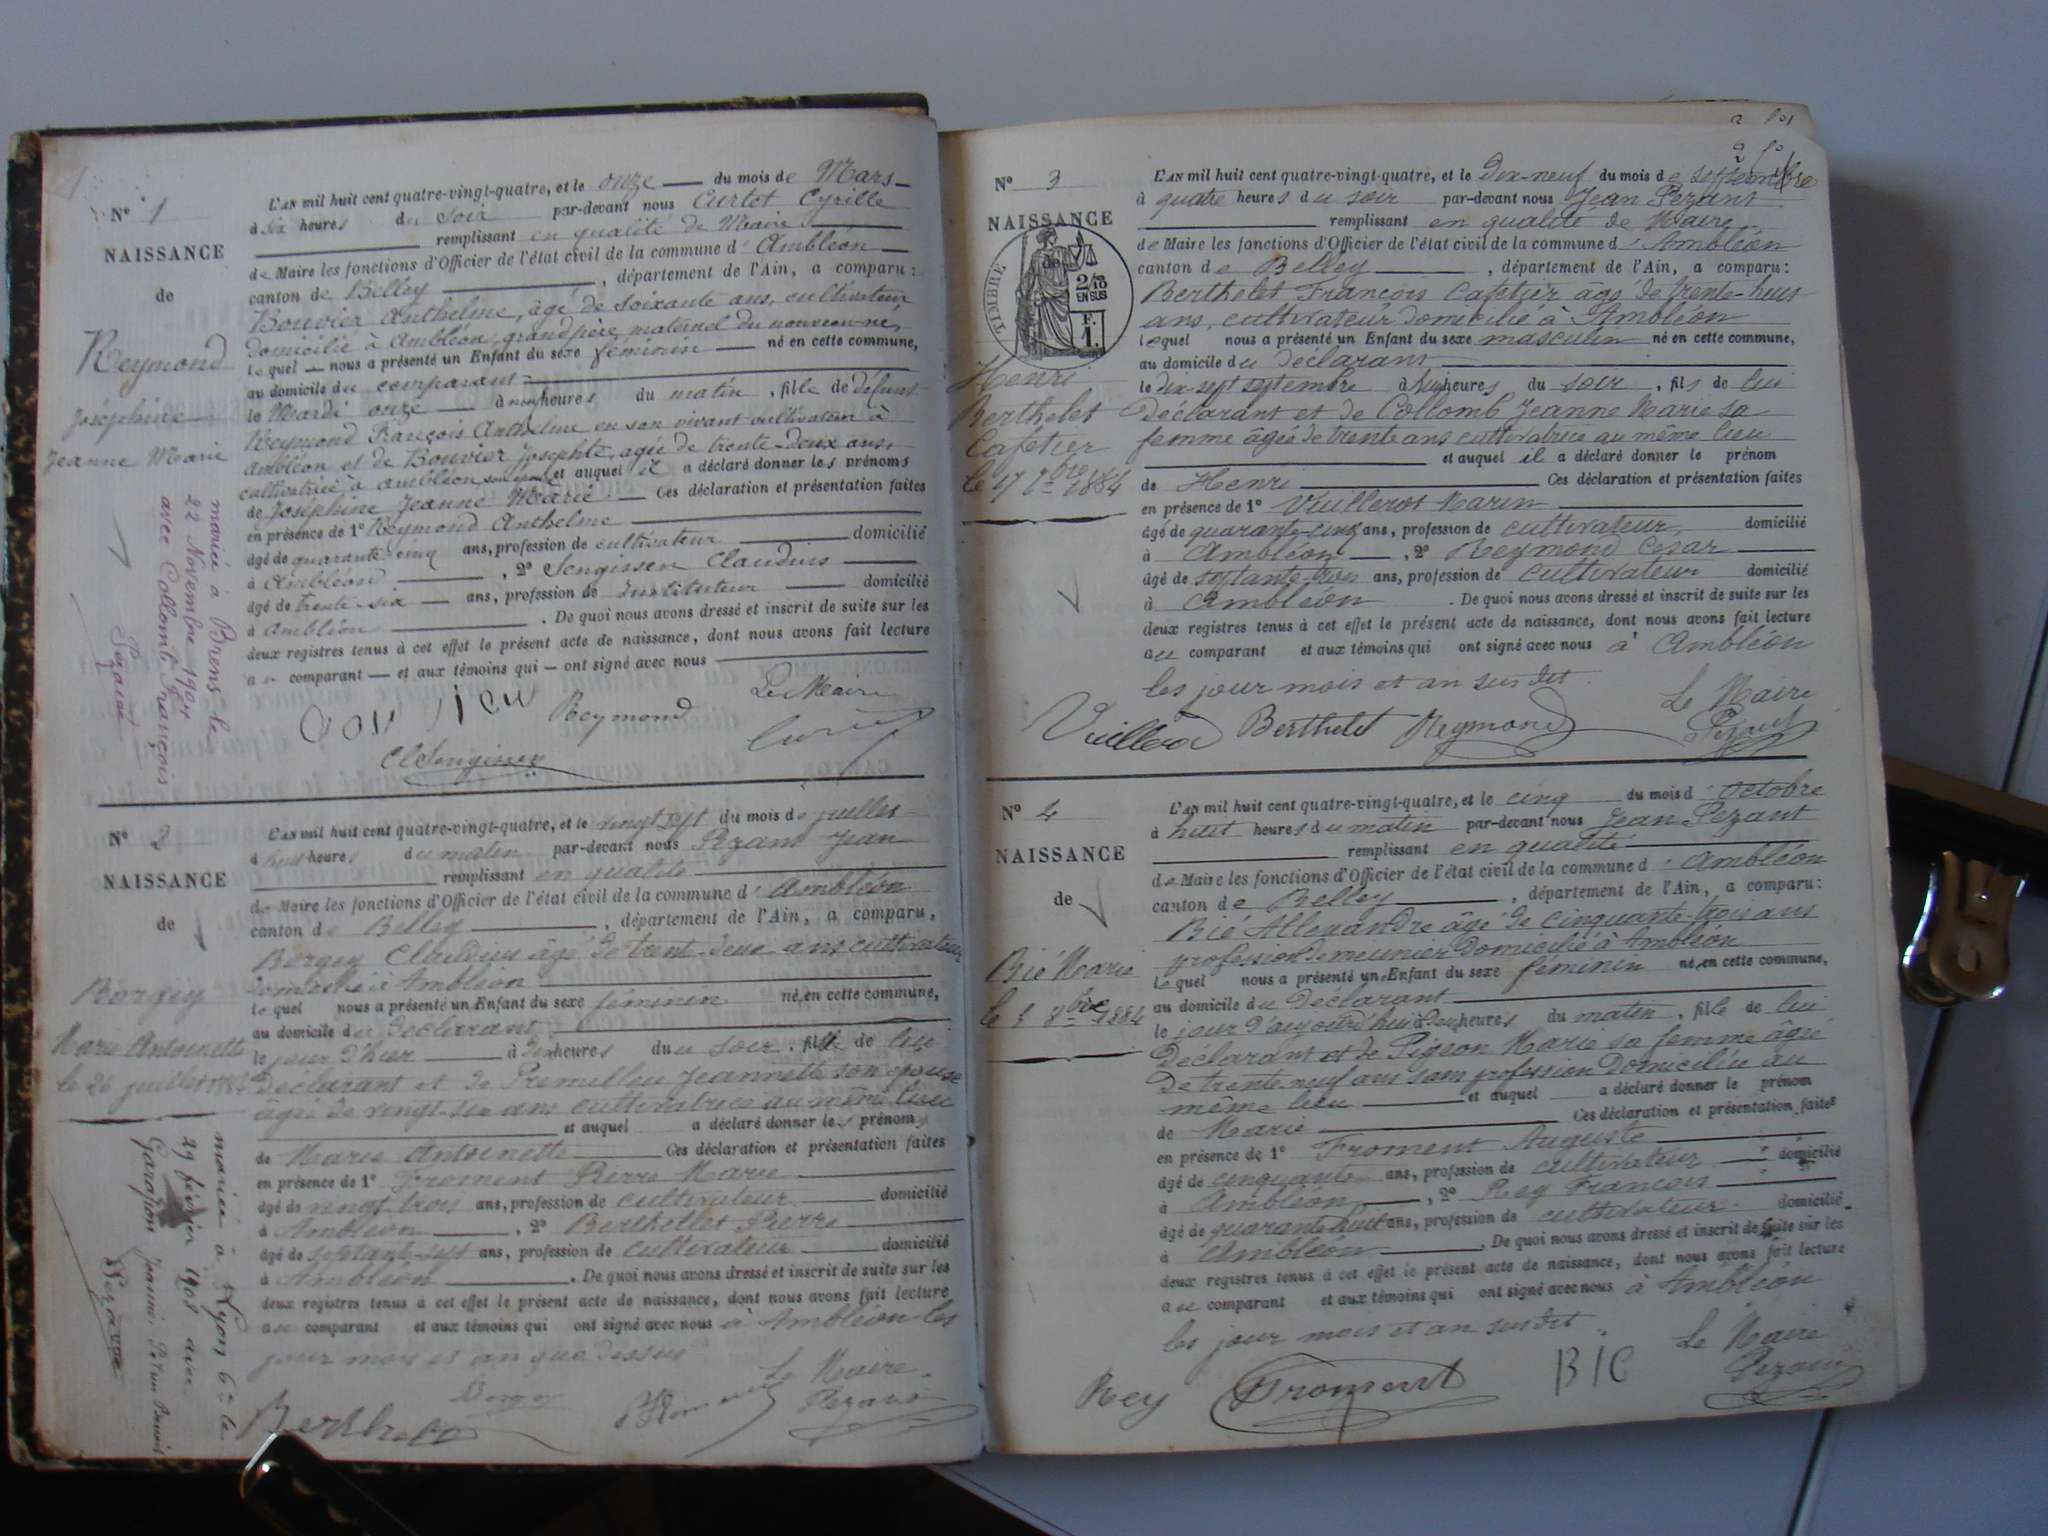 N° 1
NAISSANCE
de
Reymond
Joséphine
Jeanne Marie
mariée à Brens le
22 Novembre 1904
avec Collomb François
L'AN mil huit cent quatre-vingt-quatre, et le onze du mois de Mars
à six heures du soir par-devant nous Curtet Cyrille
remplissant en qualité de Maire
de Maire les fonctions d'Officier de l'état civil de la commune d'Ambléon
canton de Belley, département de l'Ain, a comparu:
Bouvier Anthelme, âgé de soixante ans, cultivateur
domicilié à Ambléon, grand père maternel du nouveau-né,
lequel nous a présenté un Enfant du sexe féminin né en cette commune,
au domicile du comparant
le Mardi onze à heures du matin, fille de défunt
Reymond François Anthelme en son vivant cultivateur à
Ambléon et de Bouvier Josephte, agée de trente-deux ans,
cultivatrice à Ambléon, son épouse et auquel il a déclaré donner les prénoms
de Joséphine Jeanne Marie Ces déclaration et présentation faites
en présence de 1° Reymond Anthelme
âgé de quarante-cinq ans, profession de cultivateur domicilié
à Ambléon, 2° Sengissen Claudius
âgé de trente-six ans, profession de instituteur domicilié
à Ambléon. De quoi nous avons dressé et inscrit de suite sur les
deux registres tenus à cet effet le présent acte de naissance, dont nous avons fait lecture
au comparant et aux témoins qui ont signé avec nous
Reymond Le Maire
Cl Sengissen
N° 2
NAISSANCE
de
Bergey
Marie Antoinette
le 26 juillet 1884
mariée à Lyon 6e le
29 février 1908 avec
L'AN mil huit cent quatre-vingt-quatre, et le vingt sept du mois de juillet
à huit heures du matin par-devant nous Pezant Jean
remplissant en qualité
de Maire les fonctions d'Officier de l'état civil de la commune d'Ambléon
canton de Belley, département de l'Ain, a comparu,
Bergey Claudius âgé de trent deux ans cultivateur
domicilié à Ambléon
lequel nous a présenté un Enfant du sexe féminin né en cette commune,
au domicile du Déclarant
le jour d'hier à heures du soir, fille de lui
Déclarant et de Premillieu Jeannette son épouse
âgée de vingt six ans cultivatrice au même lieu
et auquel a déclaré donner les prénoms
de Marie Antoinette Ces déclaration et présentation faites
en présence de 1° Froment Pierre Marie
âgé de vingt trois ans, profession de cultivateur domicilié
à Ambléon, 2° Berthellet Pierre
âgé de septante-sept ans, profession de cultivateur domicilié
à Ambléon. De quoi nous avons dressé et inscrit de suite sur les
deux registres tenus à cet effet le présent acte de naissance, dont nous avons fait lecture
au comparant et aux témoins qui ont signé avec nous à Ambléon les
jour mois et an que dessus
Le Maire
Bergey Pezant
N° 3
NAISSANCE
de
TIMBRE
2/10
EN SUS
F.
1.
Henri
Berthelet
Cafetier
le 17 7bre 1884
L'AN mil huit cent quatre-vingt-quatre, et le Dix-neuf du mois de septembre
à quatre heures du soir par-devant nous Jean Pezant
remplissant en qualité de Maire
de Maire les fonctions d'Officier de l'état civil de la commune d'Ambléon
canton de Belley, département de l'Ain, a comparu:
Berthelet François Cafetier âgé de trente-huit
ans, cultivateur domicilié à Ambléon
lequel nous a présenté un Enfant du sexe masculin né en cette commune,
au domicile du déclarant
le dix sept septembre à heures du soir, fils de lui
Déclarant et de Collomb Jeanne Marie sa
femme âgée de trente ans cultivatrice au même lieu
et auquel il a déclaré donner le prénom
de Henri Ces déclaration et présentation faites
en présence de 1° Vuillerot Marin
âgé de quarante-cinq ans, profession de cultivateur, domicilié
à Ambléon, 2° Reymond César
âgé de septante-trois ans, profession de cultivateur domicilié
à Ambléon. De quoi nous avons dressé et inscrit de suite sur les
deux registres tenus à cet effet le présent acte de naissance, dont nous avons fait lecture
au comparant et aux témoins qui ont signé avec nous à Ambléon
les jour mois et an sus dit.
Le Maire
Berthelet Reymond Pezant
N° 4
NAISSANCE
de
Bié Marie
le 5 8bre 1884
L'AN mil huit cent quatre-vingt-quatre, et le cinq du mois d'octobre
à huit heures du matin par-devant nous Jean Pezant
remplissant en qualité
de Maire les fonctions d'Officier de l'état civil de la commune d'Ambléon
canton de Belley, département de l'Ain, a comparu:
Bié Allexandre âgé de cinquante-trois ans
profession de meunier domicilié à Ambléon
lequel nous a présenté un Enfant du sexe féminin né en cette commune,
au domicile du Déclarant
le jour d'aujourd'hui à heures du matin, fille de lui
Déclarant et de Pigeon Marie sa femme âgée
de trente neuf ans sans profession domiciliée au
même lieu et auquel a déclaré donner le prénom
de Marie Ces déclaration et présentation faites
en présence de 1° Froment Auguste
âgé de cinquante ans, profession de cultivateur domicilié
à Ambléon, 2° Rey François
âgé de quarante huit ans, profession de cultivateur domicilié
à Ambléon. De quoi nous avons dressé et inscrit de suite sur les
deux registres tenus à cet effet le présent acte de naissance, dont nous avons fait lecture
au comparant et aux témoins qui ont signé avec nous à Ambléon
les jour mois et an sus dit.
Le Maire
Rey Froment BIE Pezant